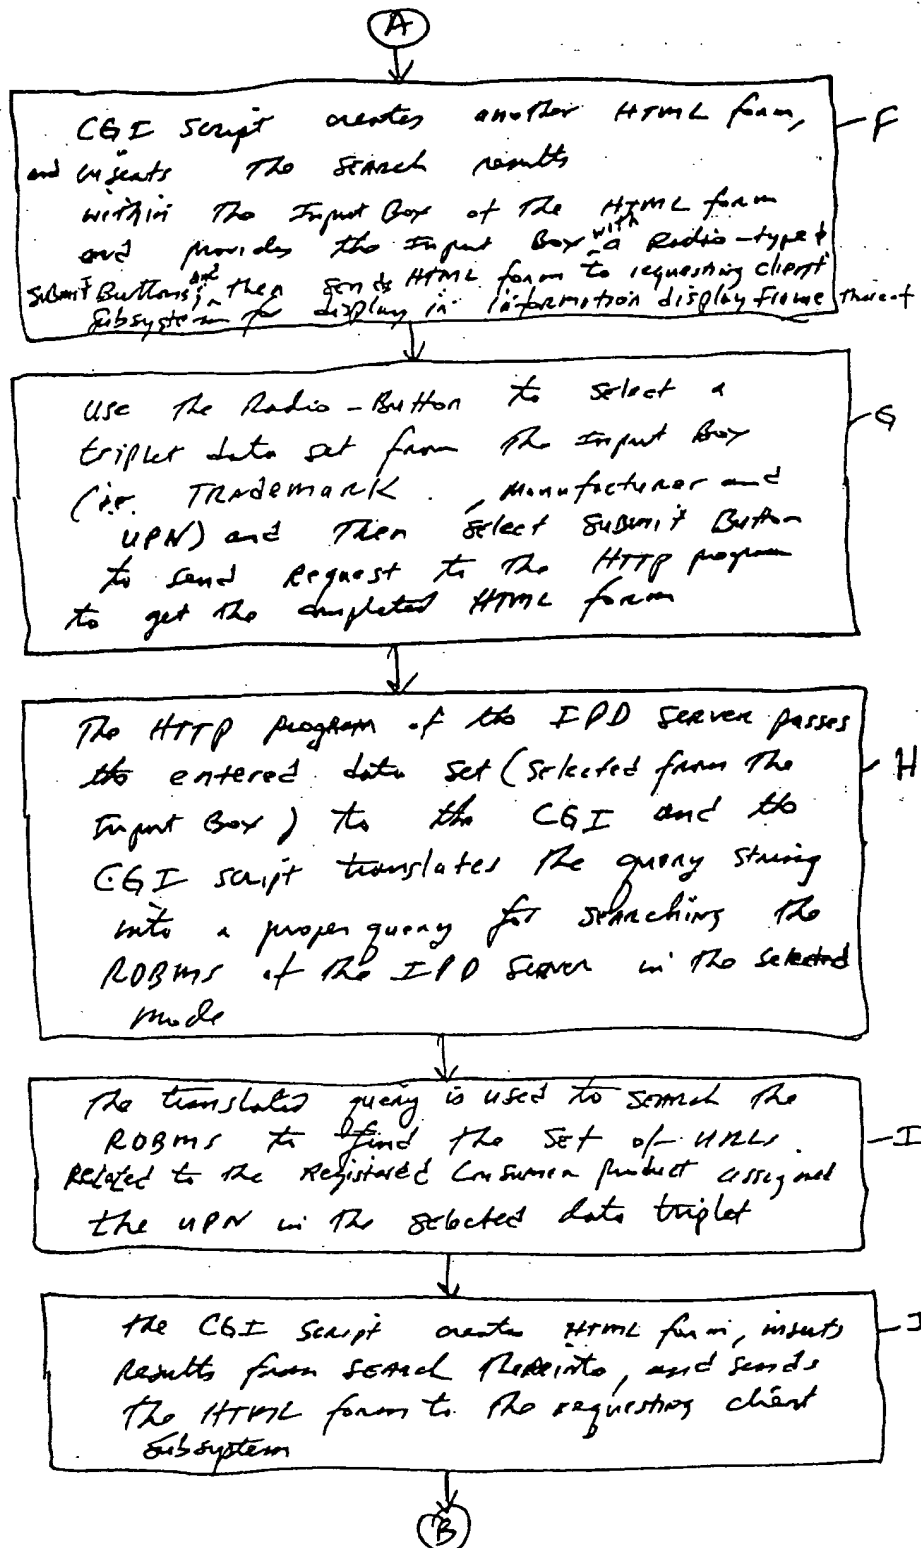 A
CGI Script creates another HTML form,
and inserts the SEARCH results
within the Input Box of the HTML form
and provides the Input Box with a Radio-type &
Submit Buttons; and then sends HTML form to requesting client
Subsystem for display in information display frame thereof
F
Use the Radio-Button to select a
triplet data set from the Input Box
(i.e. TRademark, Manufacturer and
UPN) and then select Submit Button
to send Request to the HTTP program
to get the completed HTML form
G
The HTTP program of the IPD Server passes
the entered data set (selected from the
Input Box) to the CGI and the
CGI script translates the query string
into a proper query for searching the
RDBMS of the IPD Server in the selected
mode
H
The translated query is used to SEARCH the
RDBMS to find the set of URLs
Related to the Registered Consumer product assigned
the UPN in the selected data triplet
I
the CGI Script creates HTML form, inserts
Results from SEARCH thereinto, and sends
the HTML form to the requesting client
Subsystem
J
B